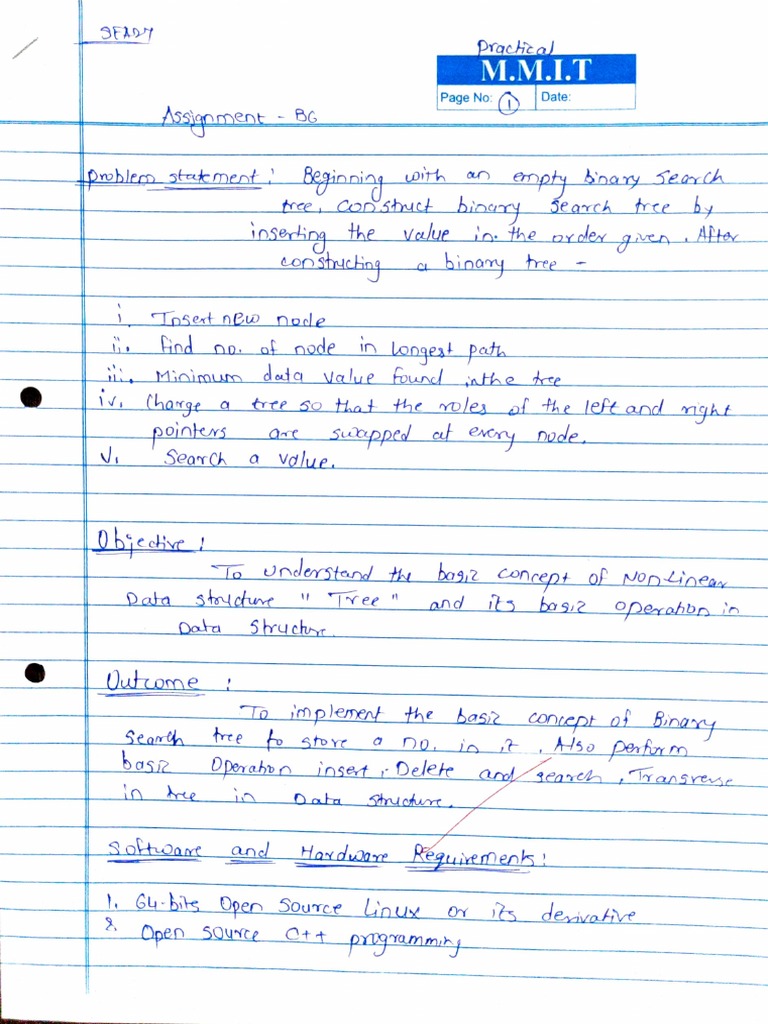 SEA27
Practical
M.M.I.T
Page No: 1 Date:
Assignment - B6
problem statement : Beginning with an empty binary search
tree, construct binary search tree by
inserting the value in the order given. After
constructing a binary tree -
i. Insert new node
ii. find no. of node in longest path
iii. Minimum data value found in the tree
iv. Change a tree so that the roles of the left and right
pointers are swapped at every node.
v. Search a value.
Objective :
To understand the basic concept of Non-Linear
Data structure " Tree " and its basic operation in
Data structure.
Outcome :
To implement the basic concept of Binary
search tree to store a no. in it . Also perform
basic Operation insert, Delete and search, Transverse
in tree in Data structure.
Software and Hardware Requirements :
1. 64-bits Open source Linux or its derivative
2. Open source C++ programming